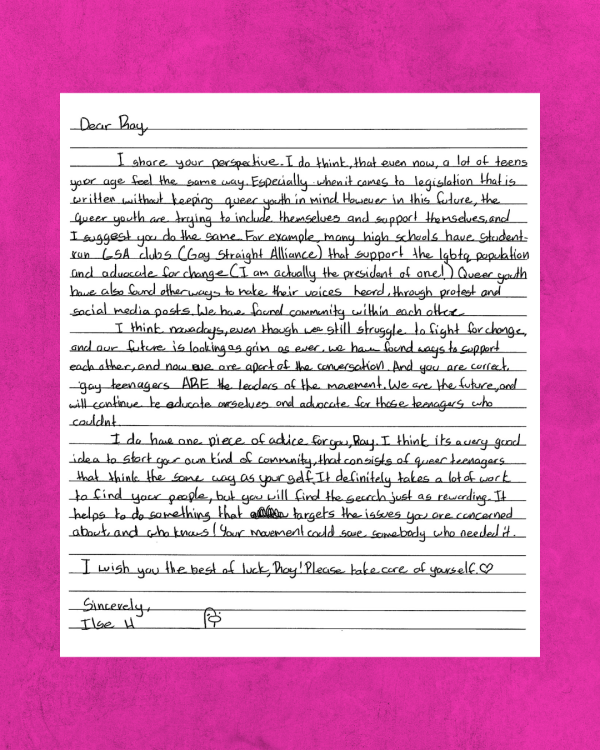 Dear Ray,
I share your perspective. I do think, that even now, a lot of teens
your age feel the same way. Especially when it comes to legislation that is
written without keeping queer youth in mind. However in this future, the
queer youth are trying to include themselves and support themselves, and
I suggest you do the same. For example, many high schools have student-
run GSA clubs (Gay Straight Alliance) that support the lgbtq population
and advocate for change (I am actually the president of one!) Queer youth
have also found other ways to make their voices heard, through protest and
social media posts. We have found community within each other.
I think nowadays, even though we still struggle to fight for change,
and our future is looking as grim as ever, we have found ways to support
each other, and now we are apart of the conversation. And you are correct,
gay teenagers ARE the leaders of the movement. We are the future, and
will continue to educate ourselves and advocate for those teenagers who
couldnt.
I do have one piece of adice for you, Ray. I think its a very good
idea to start your own kind of community, that consists of queer teenagers
that think the same way as your self. It definitely takes a lot of work
to find your people, but you will find the search just as rewarding. It
helps to do something that targets the issues you are concerned
about, and who knows! Your movement could save somebody who needed it.
I wish you the best of luck, Ray! Please take care of yourself. ♡
Sincerely,
Ilse H